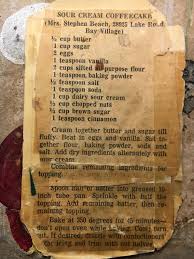 SOUR CREAM COFFEECAKE
(Mrs. Stephen Beach, 28925 Lake Road,
Bay Village)
½ cup butter
1 cup sugar
2 eggs
1 teaspoon vanilla
2 cups sifted all-purpose flour
1 teaspoon baking powder
1 teaspoon soda
½ teaspoon salt
1 cup dairy sour cream
½ cup chopped nuts
½ cup brown sugar
1 teaspoon cinnamon
Cream together butter and sugar till
fluffy. Beat in eggs and vanilla. Sift to-
gether flour, baking powder, soda and
salt. Add dry ingredients alternately with
sour cream.
Combine remaining ingredients for
topping.
Spoon half of batter into greased
inch tube pan. Sprinkle with half the
topping. Add remaining batter, then re-
maining topping.
Bake at 350 degrees for 45 minutes—
don't open oven while baking. Cool; turn
out. If desired, drizzle with confectioners'
sugar icing and trim with nut halves.